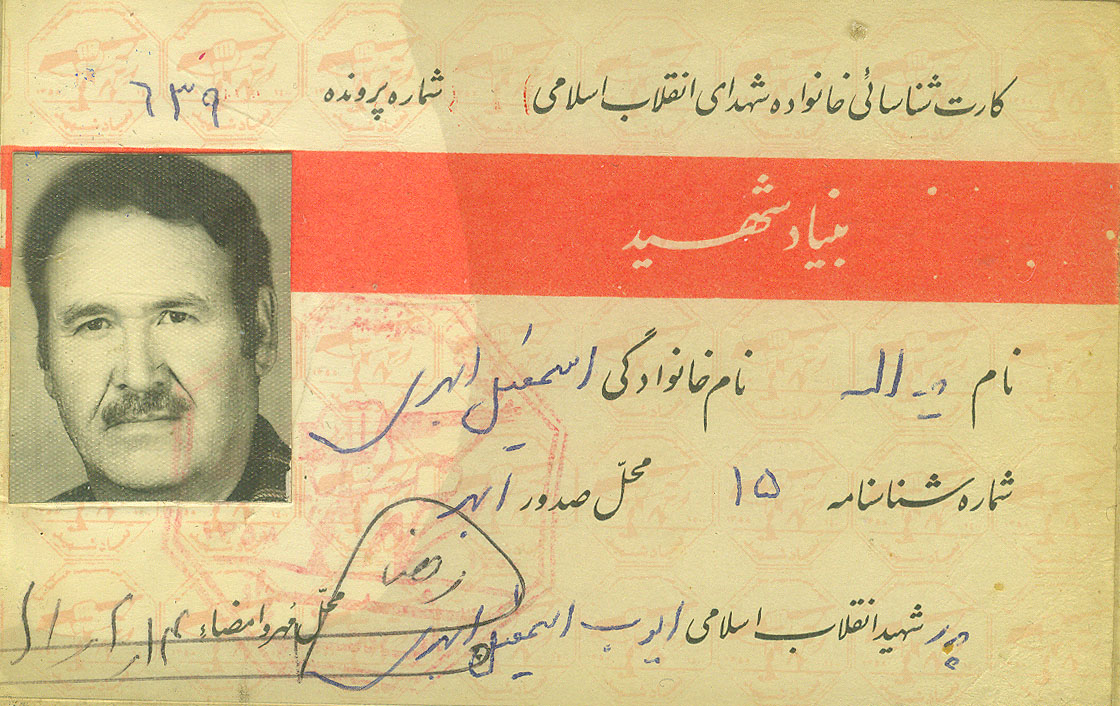 کارت شناسائی خانواده شهدای انقلاب اسلامی ( ) شماره پرونده ٦٣٩
بنیاد شهید
نام یداله نام خانوادگی اسمعیل ابهری
شماره شناسنامه ١٥ محلّ صدور ابهر
پدر شهید انقلاب اسلامی ایوب اسمعیل ابهری محلّ مُهر و امضاء